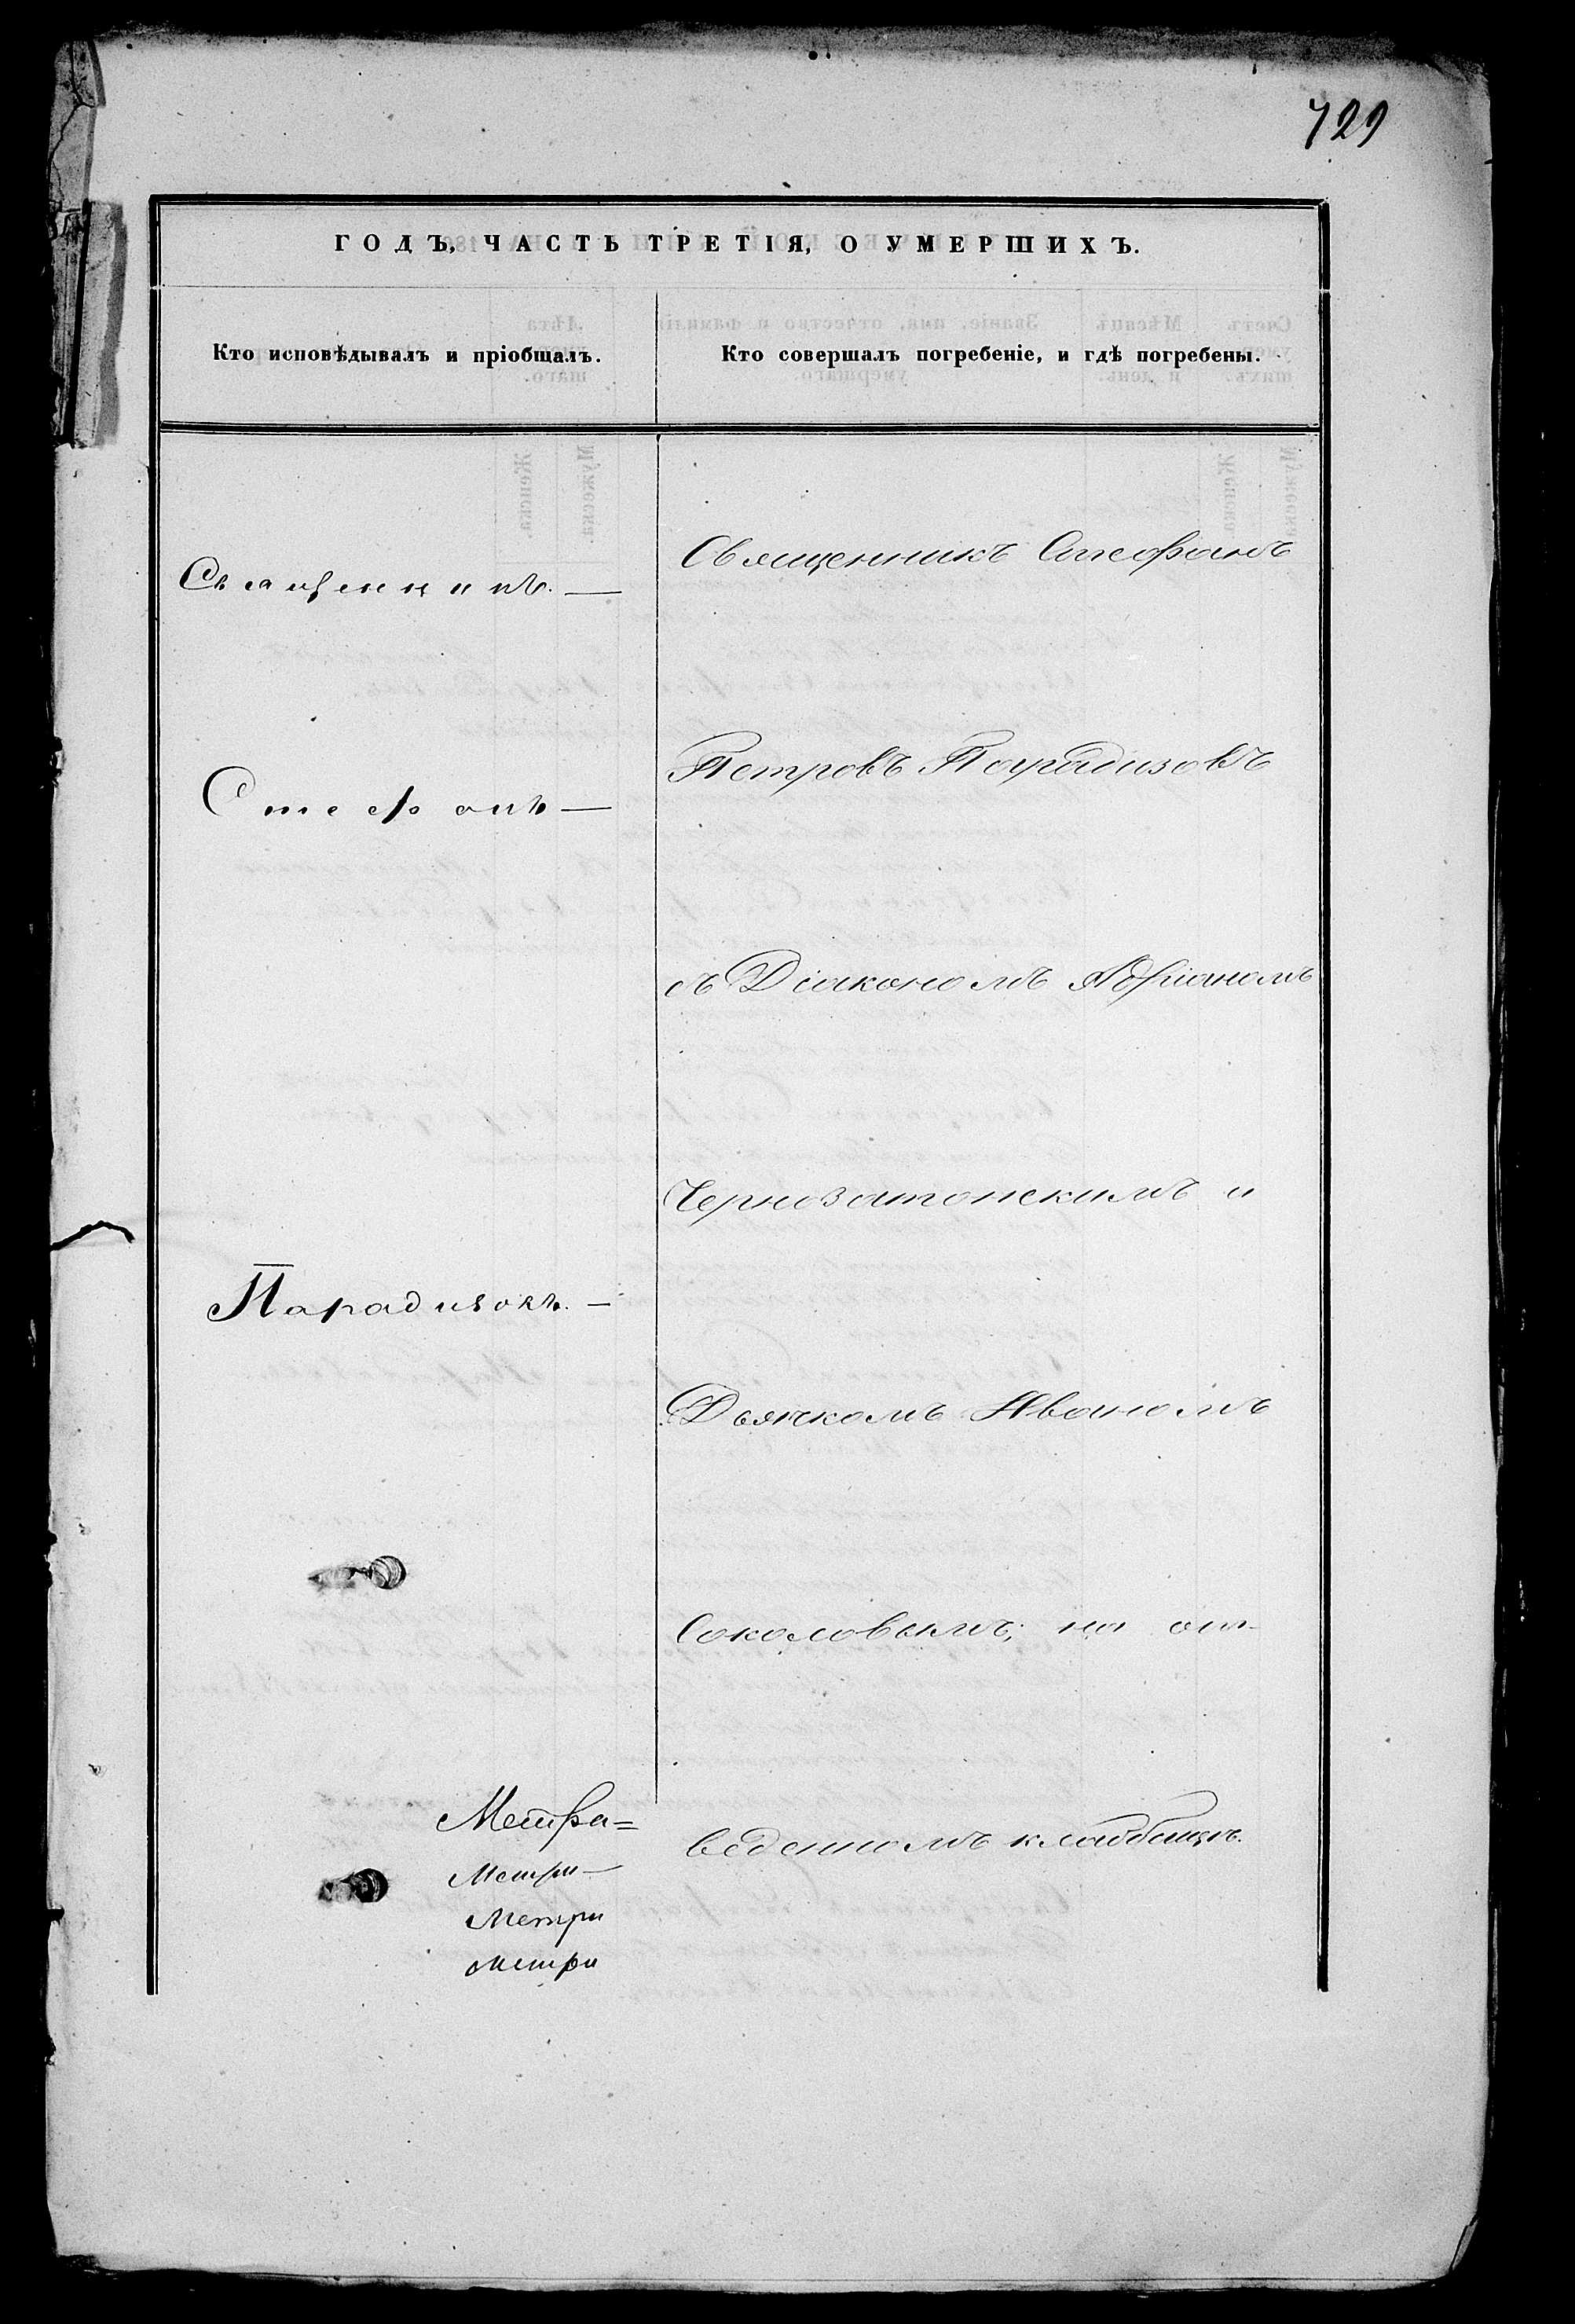 729
ГОДЪ, ЧАСТЬ ТРЕТІЯ, О УМЕРШИХЪ.
Кто исповѣдывалъ и пріобщалъ.
Кто совершалъ погребеніе, и гдѣ погребены.
Священникъ. —
Стефанъ —
Парадизовъ. —
Священникъ Стефанъ
Петровъ Парадизовъ
съ Діакономъ Адріаномъ
Чернозатонскимъ и
Дьячкомъ Иваномъ
Соколовымъ; на от-
веденномъ кладбищѣ.
Метри=
Метри—
Метри
Метри